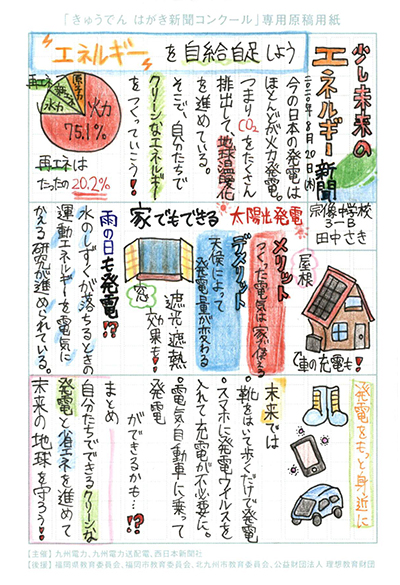 「きゅうでん はがき新聞コンクール」専用原稿用紙
少し未来の
エネルギー新聞
二〇二〇年8月20日(木)
宗像中学校
3-B
田中さき
"エネルギー"を自給自足しよう
今の日本の発電は
ほとんどが火力発電。
つまりCO₂をたくさん
排出して、地球温暖化
を進めている。
そこで、自分たちで
クリーンなエネルギー
をつくっていこう!!
再エネ
原子力
水力
火力
75.1%
再エネは
たったの20.2%
家でもできる 太陽光発電
屋根
で車の充電も!
メリット
つくった電気は家で使える
デメリット
天候によって
発電量が変わる
窓
遮光、遮熱
効果も!
雨の日も発電!?
水のしずくが落ちるときの
運動エネルギーを電気に
かえる研究が進められている。
発電をもっと身近に
未来では
・靴をはいて歩くだけで発電
・スマホに発電ウイルスを
入れて充電が不必要に。
・電気自動車に乗って
発電
ができるかも…!?
まとめ
自分たちでできるクリーンな
発電と省エネを進めて
未来の地球を守ろう!!
【主催】九州電力、九州電力送配電、西日本新聞社
【後援】福岡県教育委員会、福岡市教育委員会、北九州市教育委員会、公益財団法人 理想教育財団